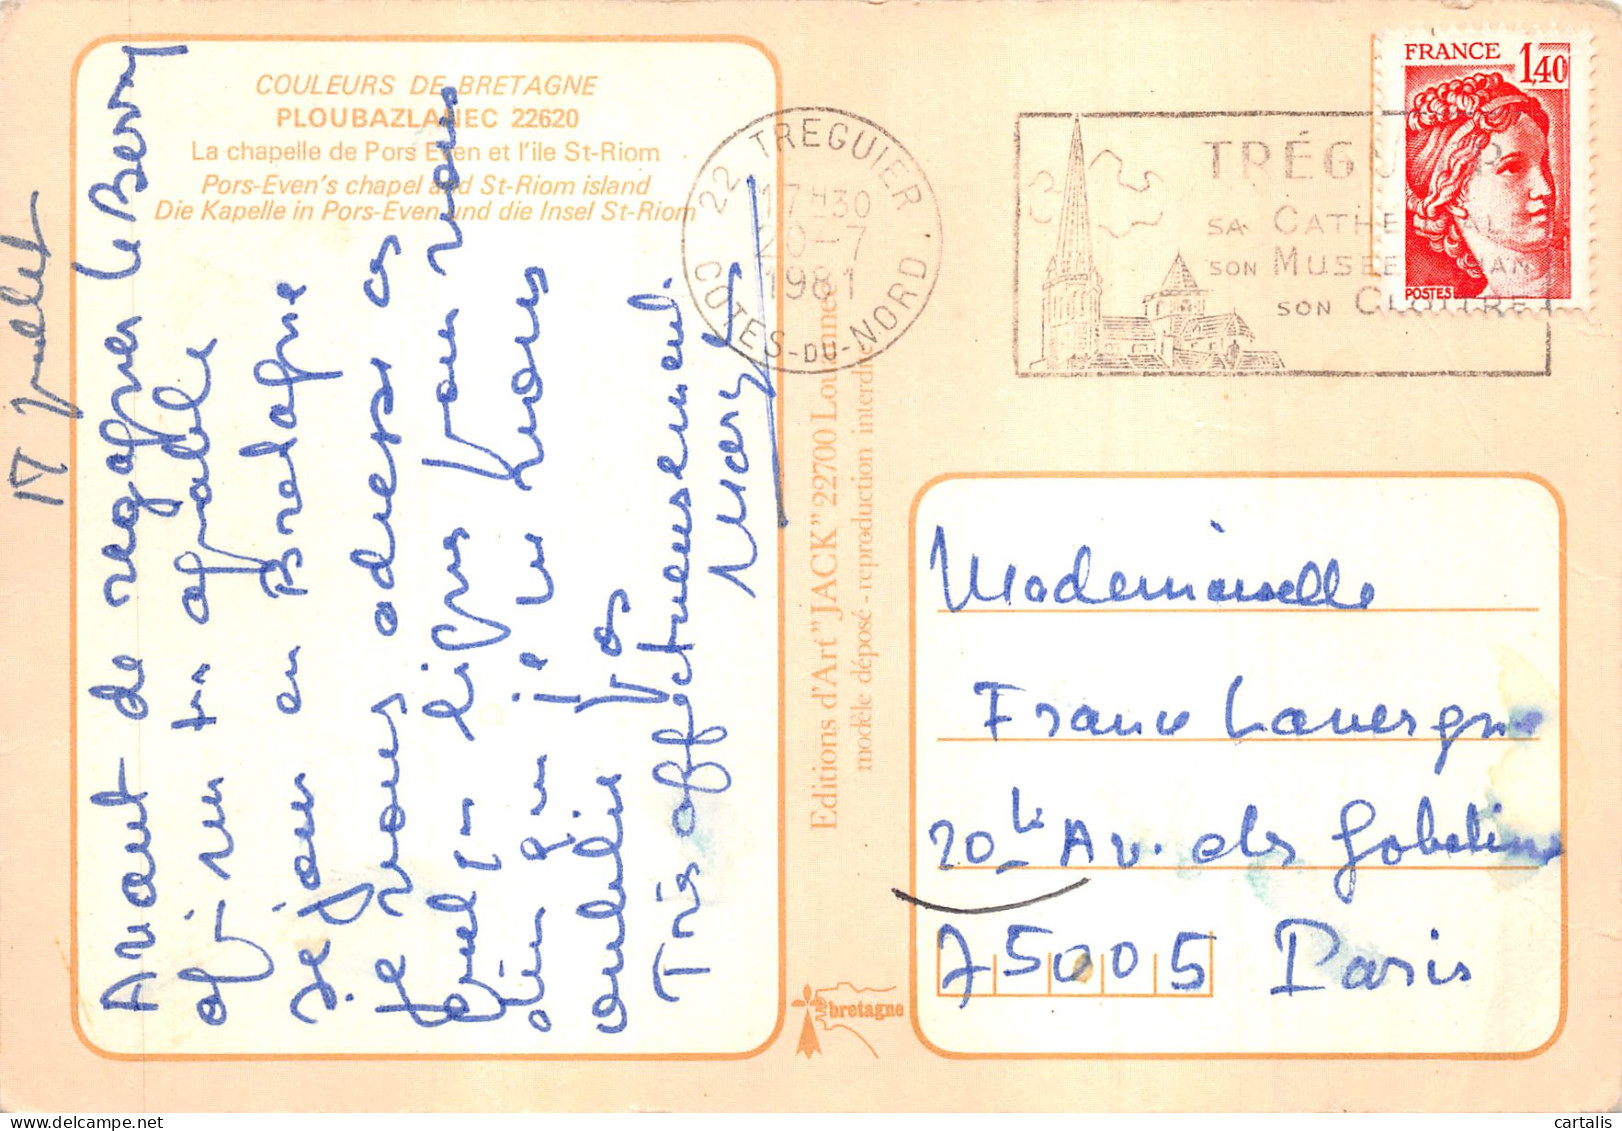 COULEURS DE BRETAGNE
PLOUBAZLANEC 22620
La chapelle de Pors Even et l'ile St-Riom
Pors-Even's chapel and St-Riom island
Die Kapelle in Pors-Even und die Insel St-Riom
17 juillet
Avant de regagner le Berry
agréable
séjour en Bretagne
je vous adresse ces
quelques lignes pour vous
dire que je ne vous
oublie pas
Très affectueusement.
Mary
Editions d'Art "JACK" 22700 Louannec
modèle déposé - reproduction interdite
bretagne
22 TREGUIER
17H30
20-7
1981
COTES-DU-NORD
TRÉGUIER
SA CATHEDRALE
SON MUSEE
SON CLOITRE
FRANCE 1,40
POSTES
Mademoiselle
France Lavergne
20 bis Av. des Gobelins
75005 Paris
cartalis